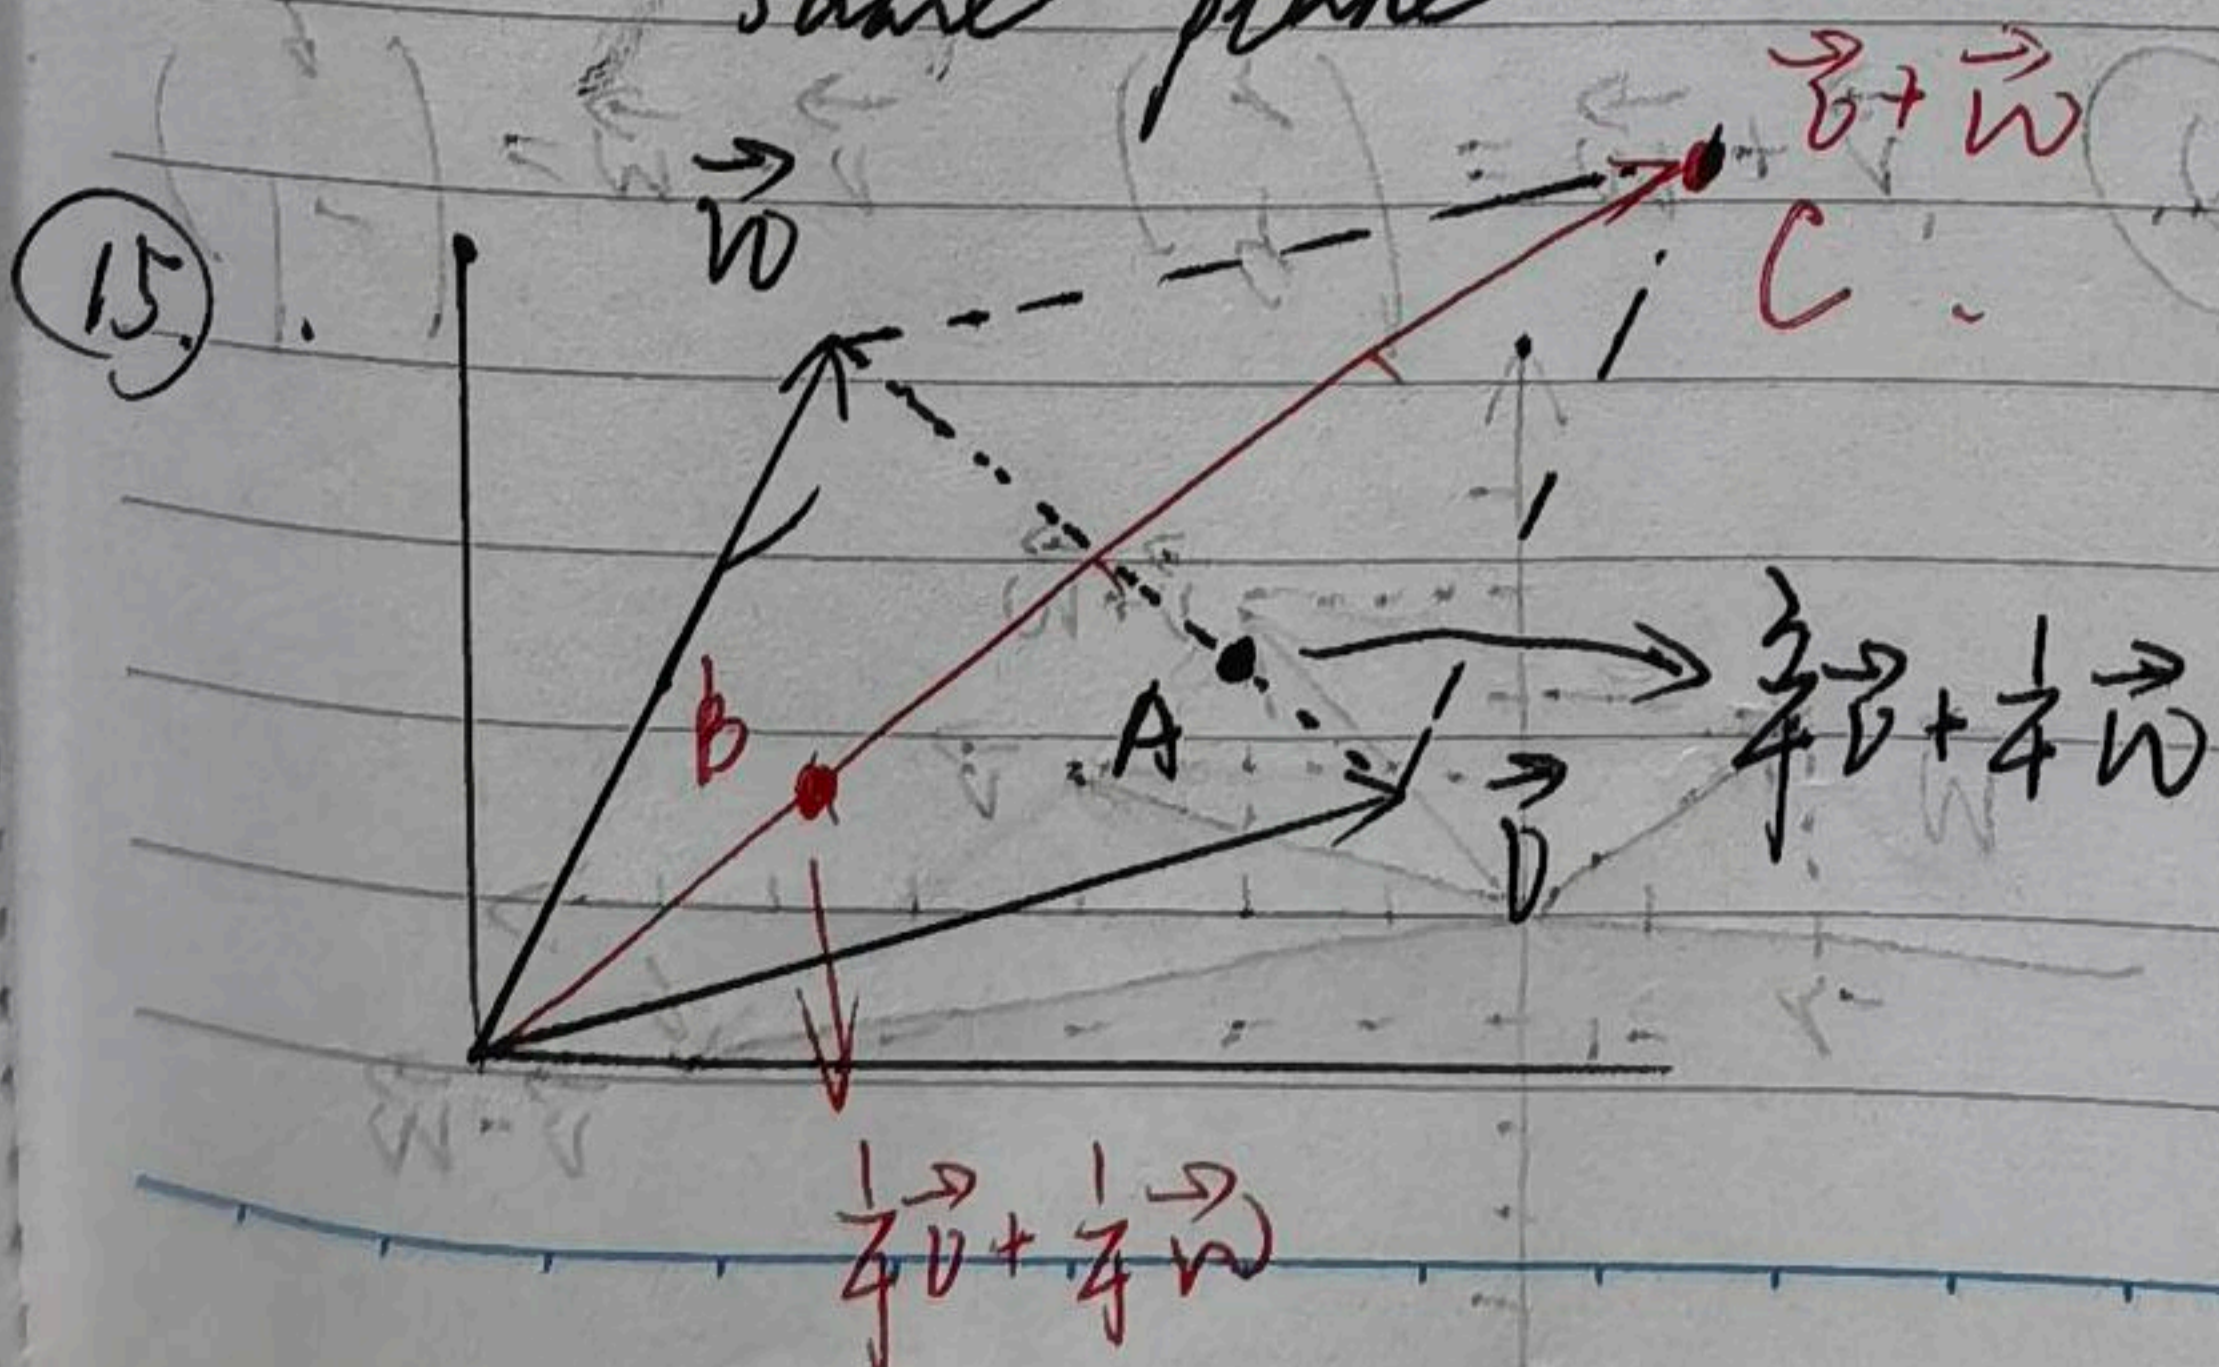 same plane
$\vec{v} + \vec{w}$
15.
$\vec{w}$
C
B
A
$\frac{3}{4}\vec{v} + \frac{1}{4}\vec{w}$
$\vec{v}$
$\frac{1}{4}\vec{v} + \frac{1}{4}\vec{w}$